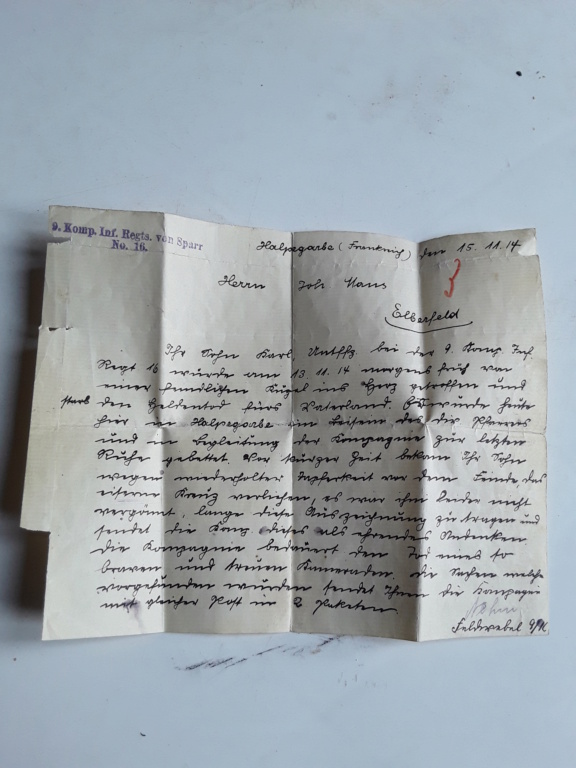 9. Komp. Inf. Regts. von Sparr
No. 16.
Halpegarbe (Frankreich) den 15.11.14
Herrn Joh. Maus
Elberfeld
Ihr Sohn Karl, Untffz. bei der 9. Komp. Inf.
Regt 16 wurde am 13.11.14 morgens früh von
einer feindlichen Kugel ins Herz getroffen und
starb den Heldentod fürs Vaterland. Er wurde heute
hier in Halpegarbe im Beisein des Pfarrers
und in Begleitung der Kompagnie zur letzten
Ruhe gebettet. Vor kurzer Zeit bekam Ihr Sohn
wegen wiederholter Tapferkeit vor dem Feinde das
eiserne Kreuz verliehen, es war ihm leider nicht
vergönnt, lange diese Auszeichnung zu tragen und
sendet die Komp. dieses als ehrendes Andenken.
Die Kompagnie bedauert den Tod eines so
braven und treuen Kameraden. Die Sachen welche
vorgefunden wurden sendet Ihnen die Kompagnie
mit gleicher Post in 2 Paketen.
Feldwebel 9/16